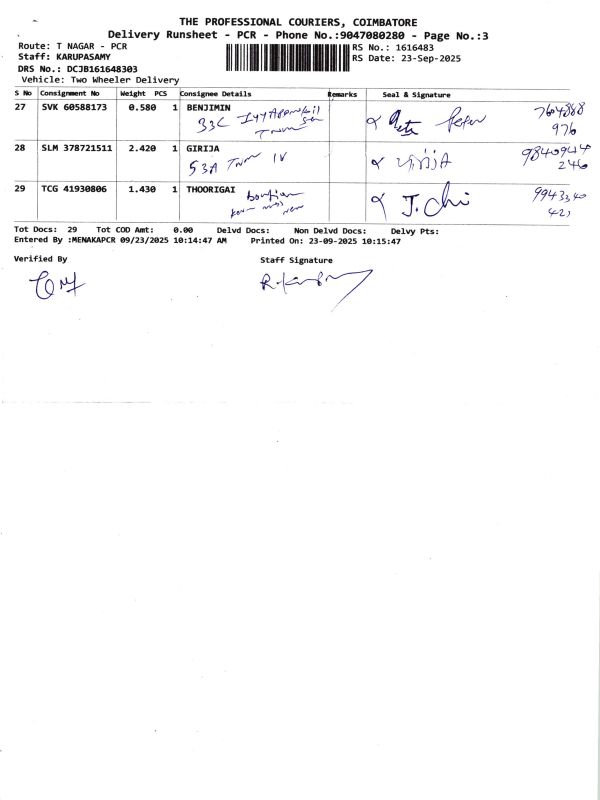 THE PROFESSIONAL COURIERS, COIMBATORE
Delivery Runsheet - PCR - Phone No.:9047080280 - Page No.:3
Route: T NAGAR - PCR RS No.: 1616483
Staff: KARUPASAMY RS Date: 23-Sep-2025
DRS No.: DCJB161648303
Vehicle: Two Wheeler Delivery
S No Consignment No Weight PCS Consignee Details Remarks Seal & Signature
27 SVK 60588173 0.580 1 BENJIMIN 7604888
33C 976
28 SLM 378721511 2.420 1 GIRIJA 9840944
53A IV 246
29 TCG 41930806 1.430 1 THOORIGAI 9943340
J. Chi 421
Tot Docs: 29 Tot COD Amt: 0.00 Delvd Docs: Non Delvd Docs: Delvy Pts:
Entered By :MENAKAPCR 09/23/2025 10:14:47 AM Printed On: 23-09-2025 10:15:47
Verified By Staff Signature